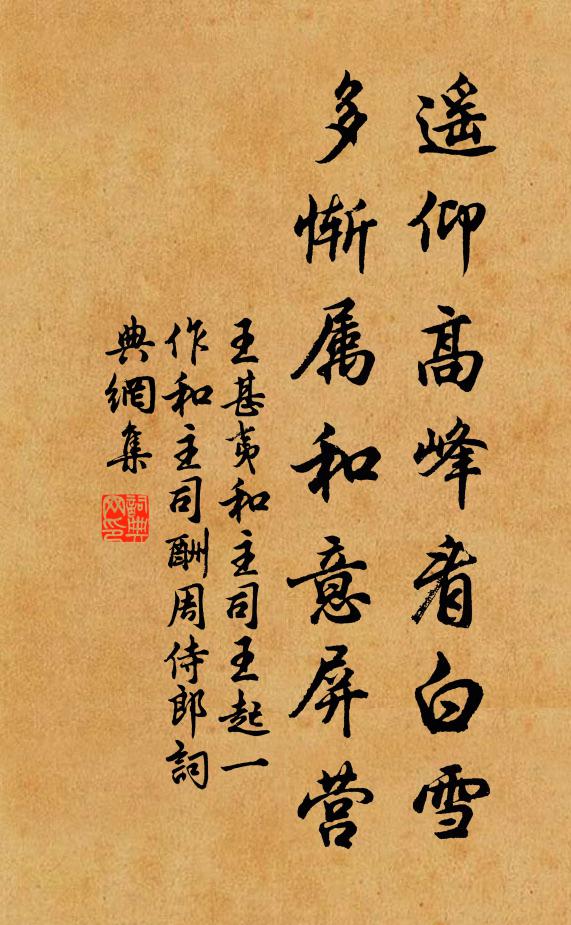 遥仰高峰看白雪
多惭属和意屏营
王甚夷和主司王起一
作和主司酬周侍郎詞
典網集
詞典網印